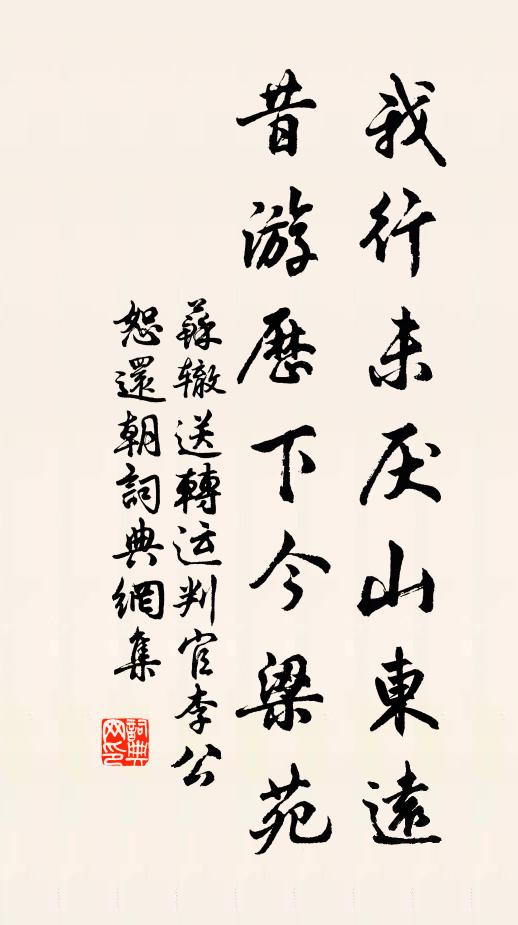 我行未厌山東遠
昔游歷下今梁苑
蘇辙送轉运判官李公
恕還朝詞典網集
詞典
网印